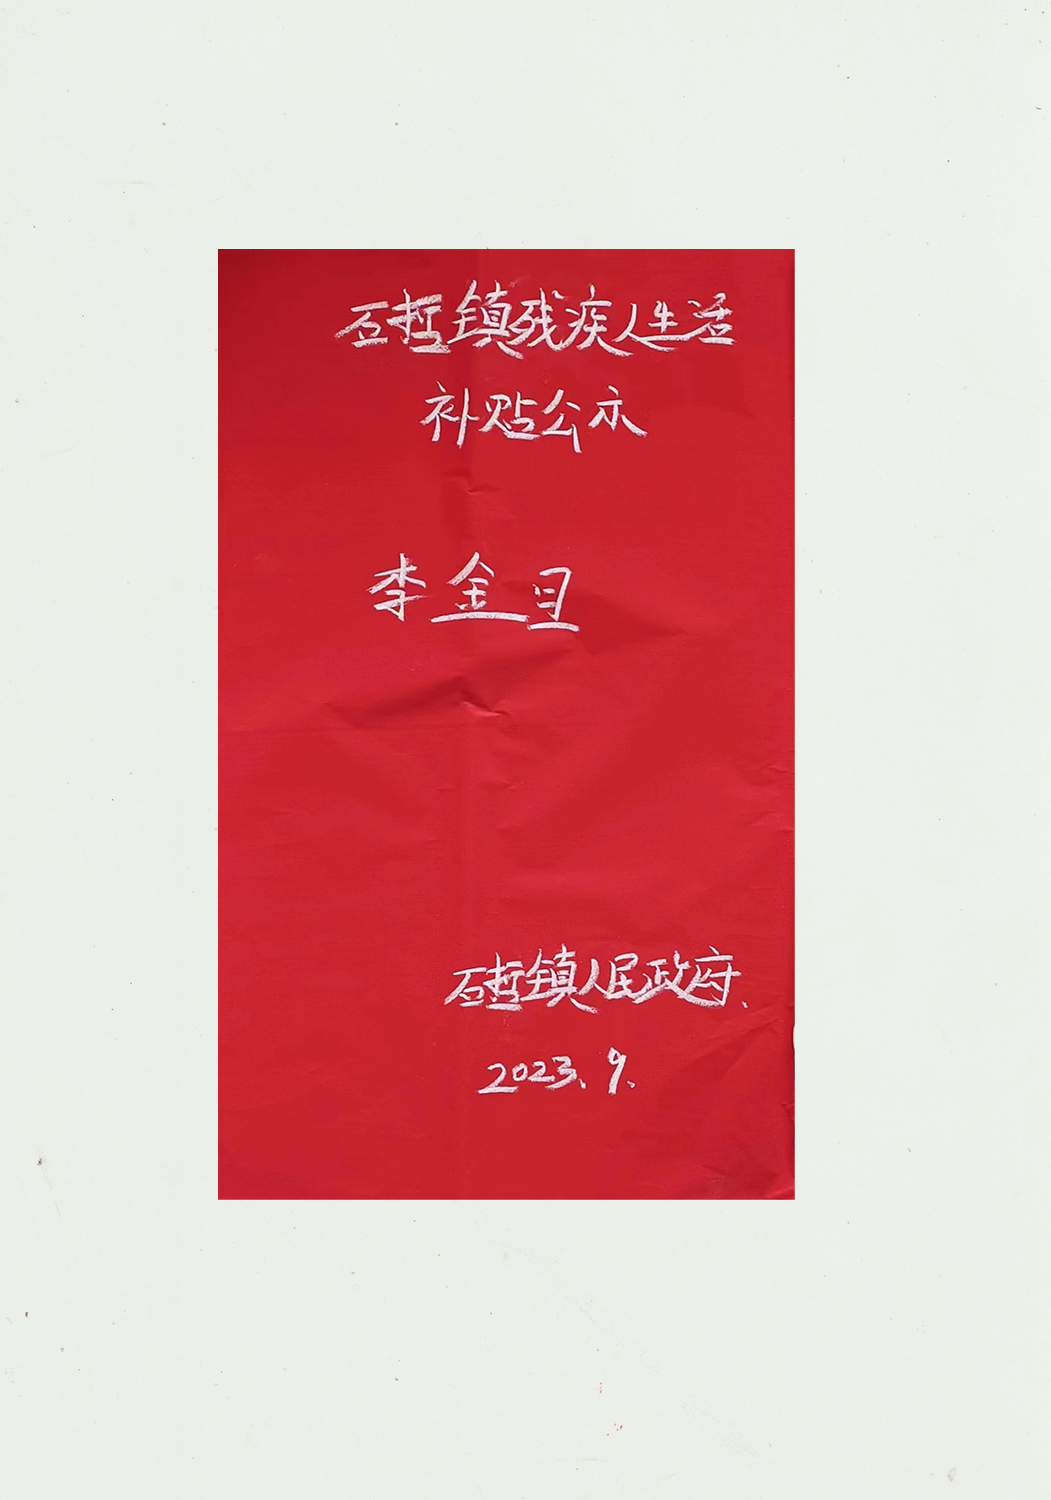 石哲镇残疾人生活
补贴公示
李金目
石哲镇人民政府.
2023.9.